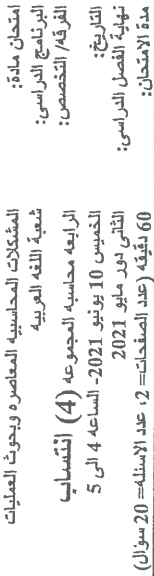 امتحان مادة: المشكلات المحاسبيه المعاصره وبحوث العمليات
البرنامج الدراسى: شعبة اللغه العربيه
الفرقه/ التخصص: الرابعه محاسبه المجموعه (4) انتساب
التاريخ: الخميس 10 يونيو 2021- الساعه 4 الى 5
نهاية الفصل الدراسى: الثانى دور مايو 2021
مدة الامتحان: 60 دقيقه (عدد الصفحات= 2، عدد الاسئله= 20 سوال)